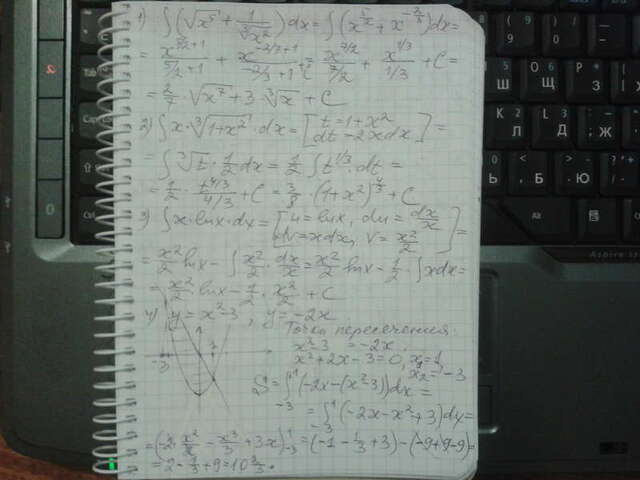 1) ∫(√x⁵ + 1/∛x²)dx = ∫(x^(5/2) + x^(-2/3))dx =
= x^(5/2+1)/(5/2+1) + x^(-2/3+1)/(-2/3+1) + C = x^(7/2)/(7/2) + x^(1/3)/(1/3) + C =
= 2/7 · √x⁷ + 3 · ∛x + C
2) ∫x · ∛(1+x²) · dx = [t = 1+x² dt = 2xdx] =
= ∫∛t · 1/2 dx = 1/2 ∫t^(1/3) · dt =
= 1/2 · t^(4/3)/(4/3) + C = 3/8 · (1+x²)^(4/3) + C
3) ∫x · lnx · dx = [u = lnx, du = dx/x dv = xdx, v = x²/2] =
= x²/2 lnx - ∫x²/2 · dx/x = x²/2 lnx - 1/2 · ∫xdx =
= x²/2 · lnx - 1/2 · x²/2 + C
4) y = x²-3, y = -2x
Точки пересечения:
x²-3 = -2x
x²+2x-3=0, x₁=1
x₂=-3
-3 1
S = ∫₋₃¹(-2x-(x²-3))dx =
= ∫₋₃¹(-2x-x²+3)dx =
= (-2 · x²/2 - x³/3 + 3x)₋₃¹ = (-1 - 1/3 + 3) - (-9+9-9) =
= 2 - 1/3 + 9 = 10 2/3.
Aspire